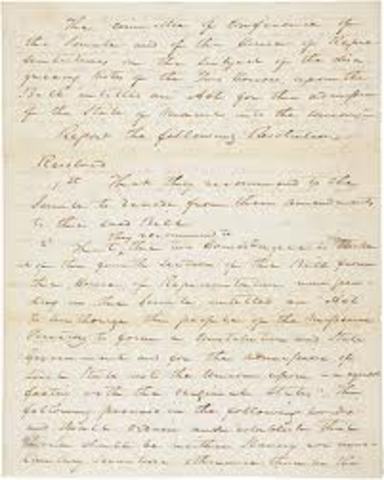 The committee of Conference of
the Senate and of the House of Repre
sentatives on the subject of the disa
greeing votes of the Two Houses upon the
Bill entitled an Act for the admission
of the State of Maine into the Union
Report the following Resolution
Resolved
1st That they recommend to the
Senate to recede from their amendments
to the said Bill
2d That they recommend to the two Houses
of the fourth section of the Bill from
the House of Representatives now pen
ding in the Senate entitled an Act
to authorize the people of the Missouri
Territory to form a Constitution and State
government and for the admission of
such State into the Union upon an equal
footing with the original States, the
following proviso in the following words
and shall ordain and establish that
there shall be neither Slavery nor invo
luntary servitude otherwise than in the